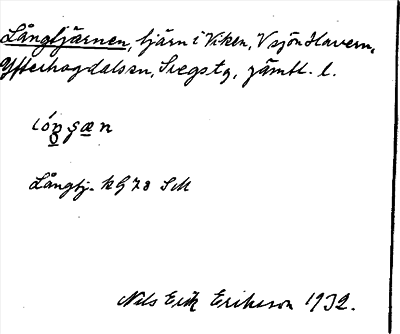 Långtjärnen, tjärn i Viken, V sjön Havern,
Ytterhogdalssn, Svegs tg, Jämtl. l.
Långtj. kG 78 SM
Nils Erik Eriksson 1932.